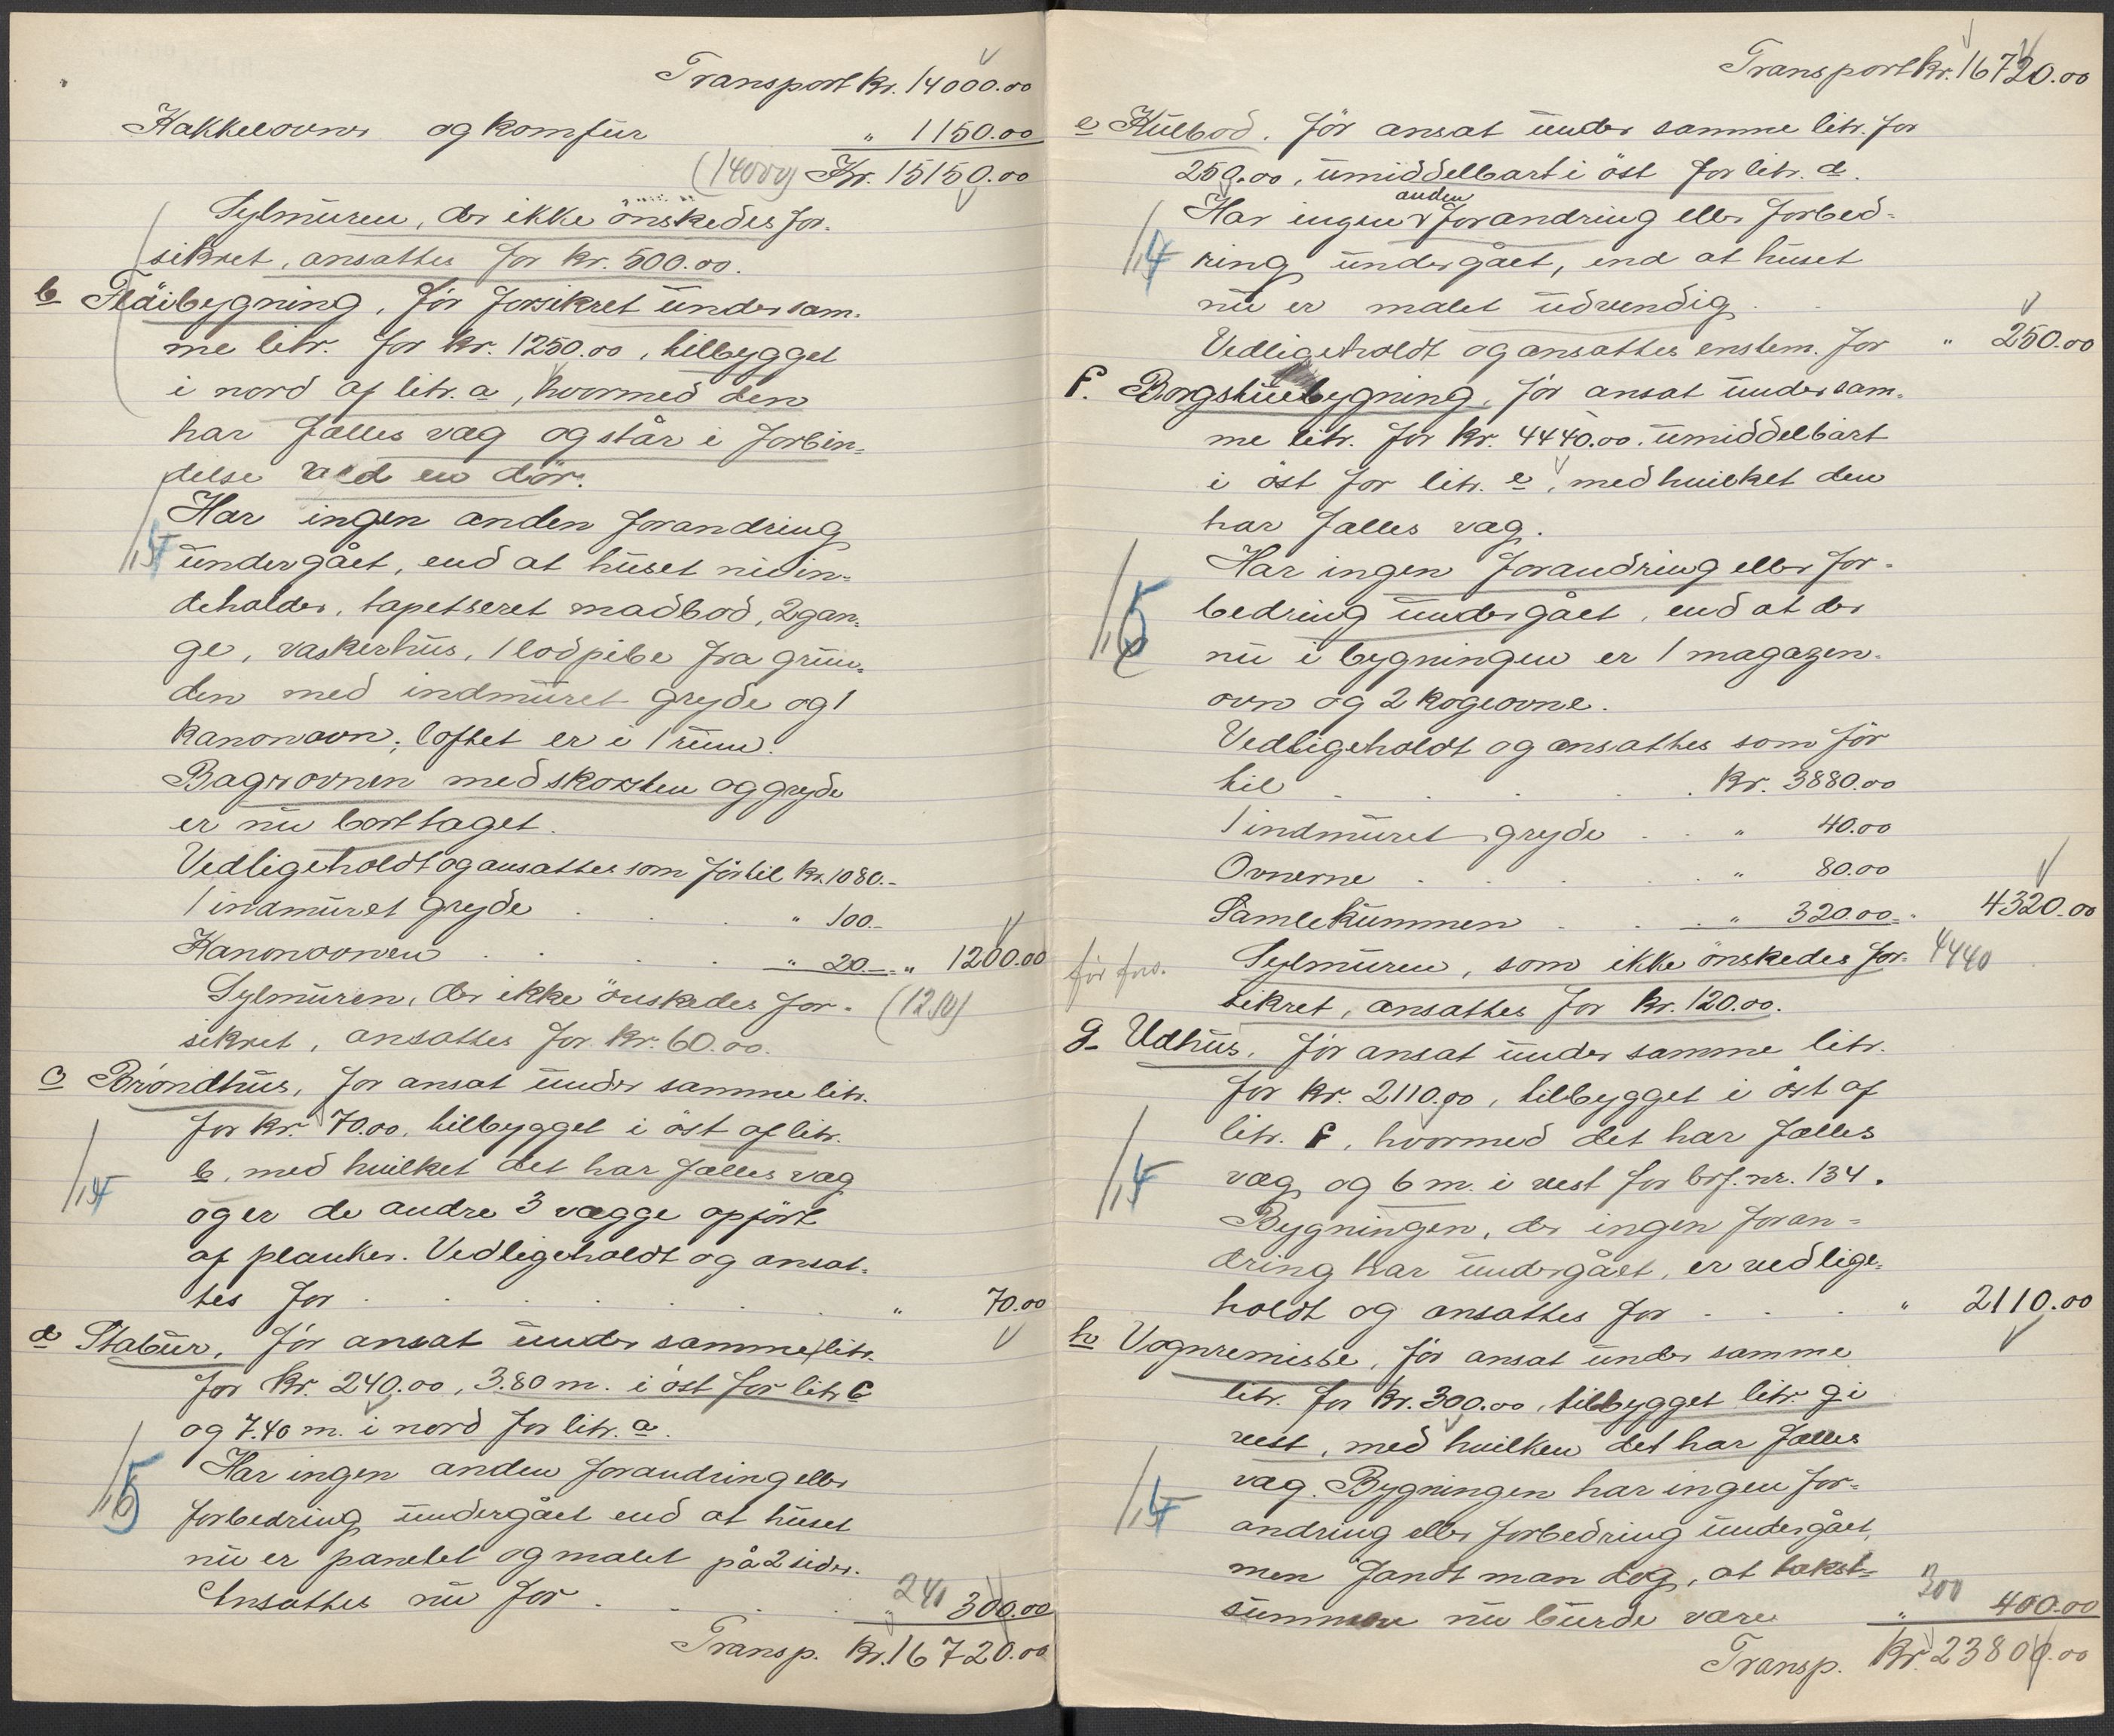 Transport kr. 14000.00
Kakkelovner og komfur " 1150.00
(14000) Kr. 15150.00
Sylmuren, der ikke önskedes for-
sikret, ansattes for kr. 500.00.
b Flöibygning, för forsikret under sam-
me litr. for kr. 1250.00, tilbygget
i nord af litr. a, hvormed den
har fælles væg og står i forbin-
delse ved en dör.
Har ingen anden forandring
undergået, end at huset nu in-
deholder, tapetseret madbod, 2 gan-
ge, vaskerhus, 1 lodpibe fra grun-
den med indmuret gryde og 1
kanonovn; loftet er i 1 rum.
Bagerovnen med skorsten og gryde
er nu borttaget.
Vedligeholdt og ansattes som för til kr. 1080.-
1 indmuret gryde " 100.-
Kanonovnen " 20.- " 1200.00
Sylmuren, der ikke önskedes for- (1250)
sikret, ansattes for kr. 60.00.
c Bröndhus, för ansat under samme litr.
for kr. 70.00, tilbygget i öst af litr.
b, med hvilket det har fælles væg
og er de andre 3 vægge opfört
af planker. Vedligeholdt og ansat-
tes for " 70.00
d Stabur, för ansat under samme litr.
for kr. 240.00, 3.80 m. i öst for litr. c
og 7.40 m. i nord for litr. a.
Har ingen anden forandring eller
forbedring undergået end at huset
nu er panelet og malet på 2 sider.
Ansattes nu for " 240 300.00
Transp. kr. 16720.00
Transport kr. 16720.00
e Kulbod, för ansat under samme litr. for
250.00, umiddelbart i öst for litr. d.
anden
Har ingen forandring eller forbed-
ring undergået, end at huset
nu er malet udvendig.
Vedligeholdt og ansattes enstem. for " 250.00
f. Borgstuebygning, för ansat under sam-
me litr. for kr. 4440.00. umiddelbart
i öst for litr. e, med hvilket den
har fælles væg.
Har ingen forandring eller for-
bedring undergået, end at der
nu i bygningen er 1 magazin-
ovn og 2 kogeovne.
Vedligeholdt og ansattes som för
til kr. 3880.00
1 indmuret gryde " 40.00
Ovnerne " 80.00
Samlekummen " 320.00 " 4320.00
för fors. Sylmuren, som ikke önskedes for- 4440
sikret, ansattes for kr. 120.00.
g. Udhus, för ansat under samme litr.
for kr. 2110.00, tilbygget i öst af
litr. f, hvormed det har fælles
væg og 6 m. i vest for brf. nr. 134.
Bygningen, der ingen foran-
dring har undergået, er vedlige-
holdt og ansattes for " 2110.00
h Vognremisse, för ansat under samme
litr. for kr. 300.00, tilbygget litr. g i
vest, med hvilken det har fælles
væg. Bygningen har ingen for-
andring eller forbedring undergået,
men fandt man dog, at takst-
summen nu burde være " 300 400.00
Transp. kr. 23800.00